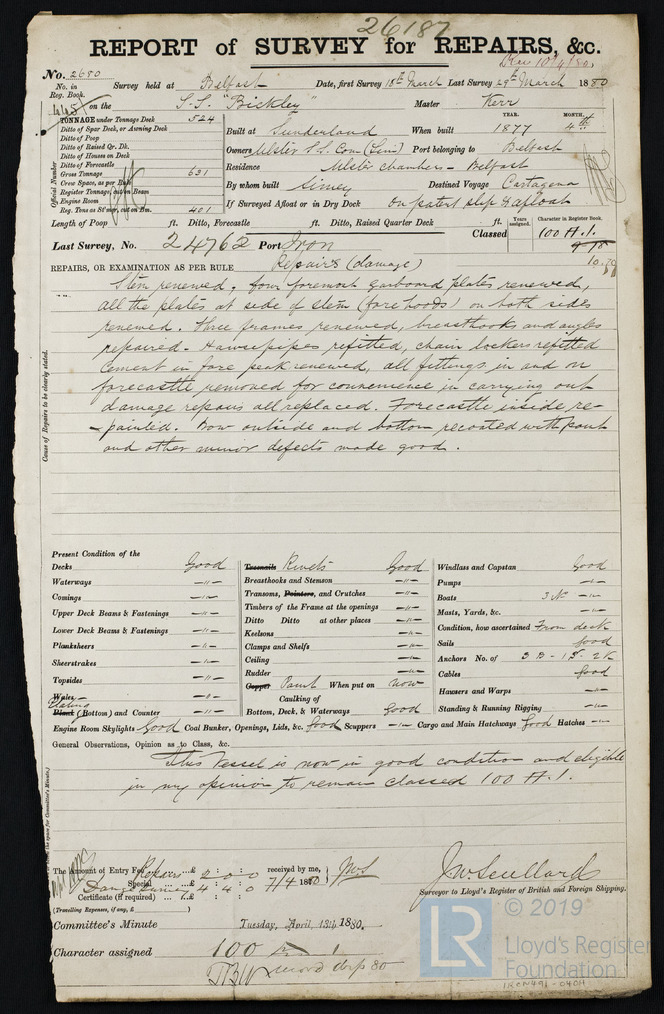 26187
REPORT of SURVEY for REPAIRS, &c.
Rec 10/4/80.
No. 2680
No. in Reg. Book. Survey held at Belfast Date, first Survey 18th March Last Survey 29th March 1880
on the S.S. "Bickley" Master Kerr
TONNAGE under Tonnage Deck 524
Ditto of Spar Deck, or Awning Deck
Ditto of Poop
Ditto of Raised Qr. Dk.
Ditto of Houses on Deck
Ditto of Forecastle
Gross Tonnage 631
Crew Space, as per Rule
Register Tonnage, cut on Beam
Engine Room
Reg. Tons as St'mr, cut on Bm. 401
Official Number
YEAR. MONTH.
Built at Sunderland When built 1877 4th
Owners Ulster S.S. Com (Lim) Port belonging to Belfast
Residence Ulster chambers - Belfast
By whom built Destined Voyage Cartagena
If Surveyed Afloat or in Dry Dock On patent slip & afloat
Length of Poop ft. Ditto, Forecastle ft. Ditto, Raised Quarter Deck ft.
Years assigned. Character in Register Book.
Last Survey, No. 24762 Port Iron Classed 100 A.1.
9.78
10.79
REPAIRS, OR EXAMINATION AS PER RULE Repairs (damage)
Stem renewed, four foremost garboard plates renewed,
all the plates at side of stem (fore hoods) on both sides
renewed. Three frames renewed, breasthooks and angles
repaired. Hawsepipes refitted, chain lockers refitted
cement in fore peak renewed, all fittings in and on
forecastle removed for convenience in carrying out
damage repairs all replaced. Forecastle inside re-
-painted. Bow outside and bottom recoated with paint
and other minor defects made good.
Cause of Repairs to be clearly stated.
Present Condition of the
Decks Good
Waterways -"-
Comings -"-
Upper Deck Beams & Fastenings -"-
Lower Deck Beams & Fastenings -"-
Planksheers -"-
Sheerstrakes -"-
Topsides -"-
Wales -"-
Plating
Plank (Bottom) and Counter -"-
Treenails Rivets Good
Breasthooks and Stemson -"-
Transoms, Pointers, and Crutches -"-
Timbers of the Frame at the openings -"-
Ditto Ditto at other places -"-
Keelsons -"-
Clamps and Shelfs -"-
Ceiling -"-
Rudder -"-
Copper Paint When put on now
Caulking of
Bottom, Deck, & Waterways Good
Windlass and Capstan Good
Pumps -"-
Boats 3 No -"-
Masts, Yards, &c. -"-
Condition, how ascertained From deck
Sails Good
Anchors No. of 3 B - 1 S - 2 K
Cables Good
Hawsers and Warps -"-
Standing & Running Rigging -"-
Engine Room Skylights Good Coal Bunker, Openings, Lids, &c. Good Scuppers -"- Cargo and Main Hatchways Good Hatches -"-
General Observations, Opinion as to Class, &c.
This Vessel is now in good condition and eligible
in my opinion to remain classed 100 A.1.
The Amount of Entry Fee Repairs £ 2 : 0 : 0 received by me,
Special Damage Survey £ 4 : 4 : 0 7/4 1880
Certificate (if required) £
(Travelling Expenses, if any, £ )
J W Scullard
Surveyor to Lloyd's Register of British and Foreign Shipping.
Committee's Minute Tuesday, April, 13th 1880.
Character assigned 100 A 1
© 2019
LR
Lloyd's Register
Foundation
IRON491-0404